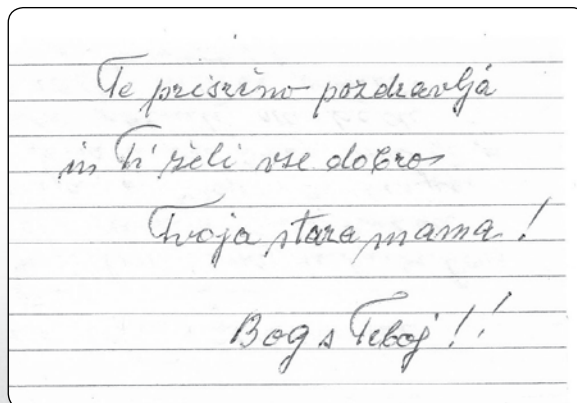 Te prisrčno pozdravlja
in Ti želi vse dobro
Tvoja stara mama!
Bog s Teboj!!